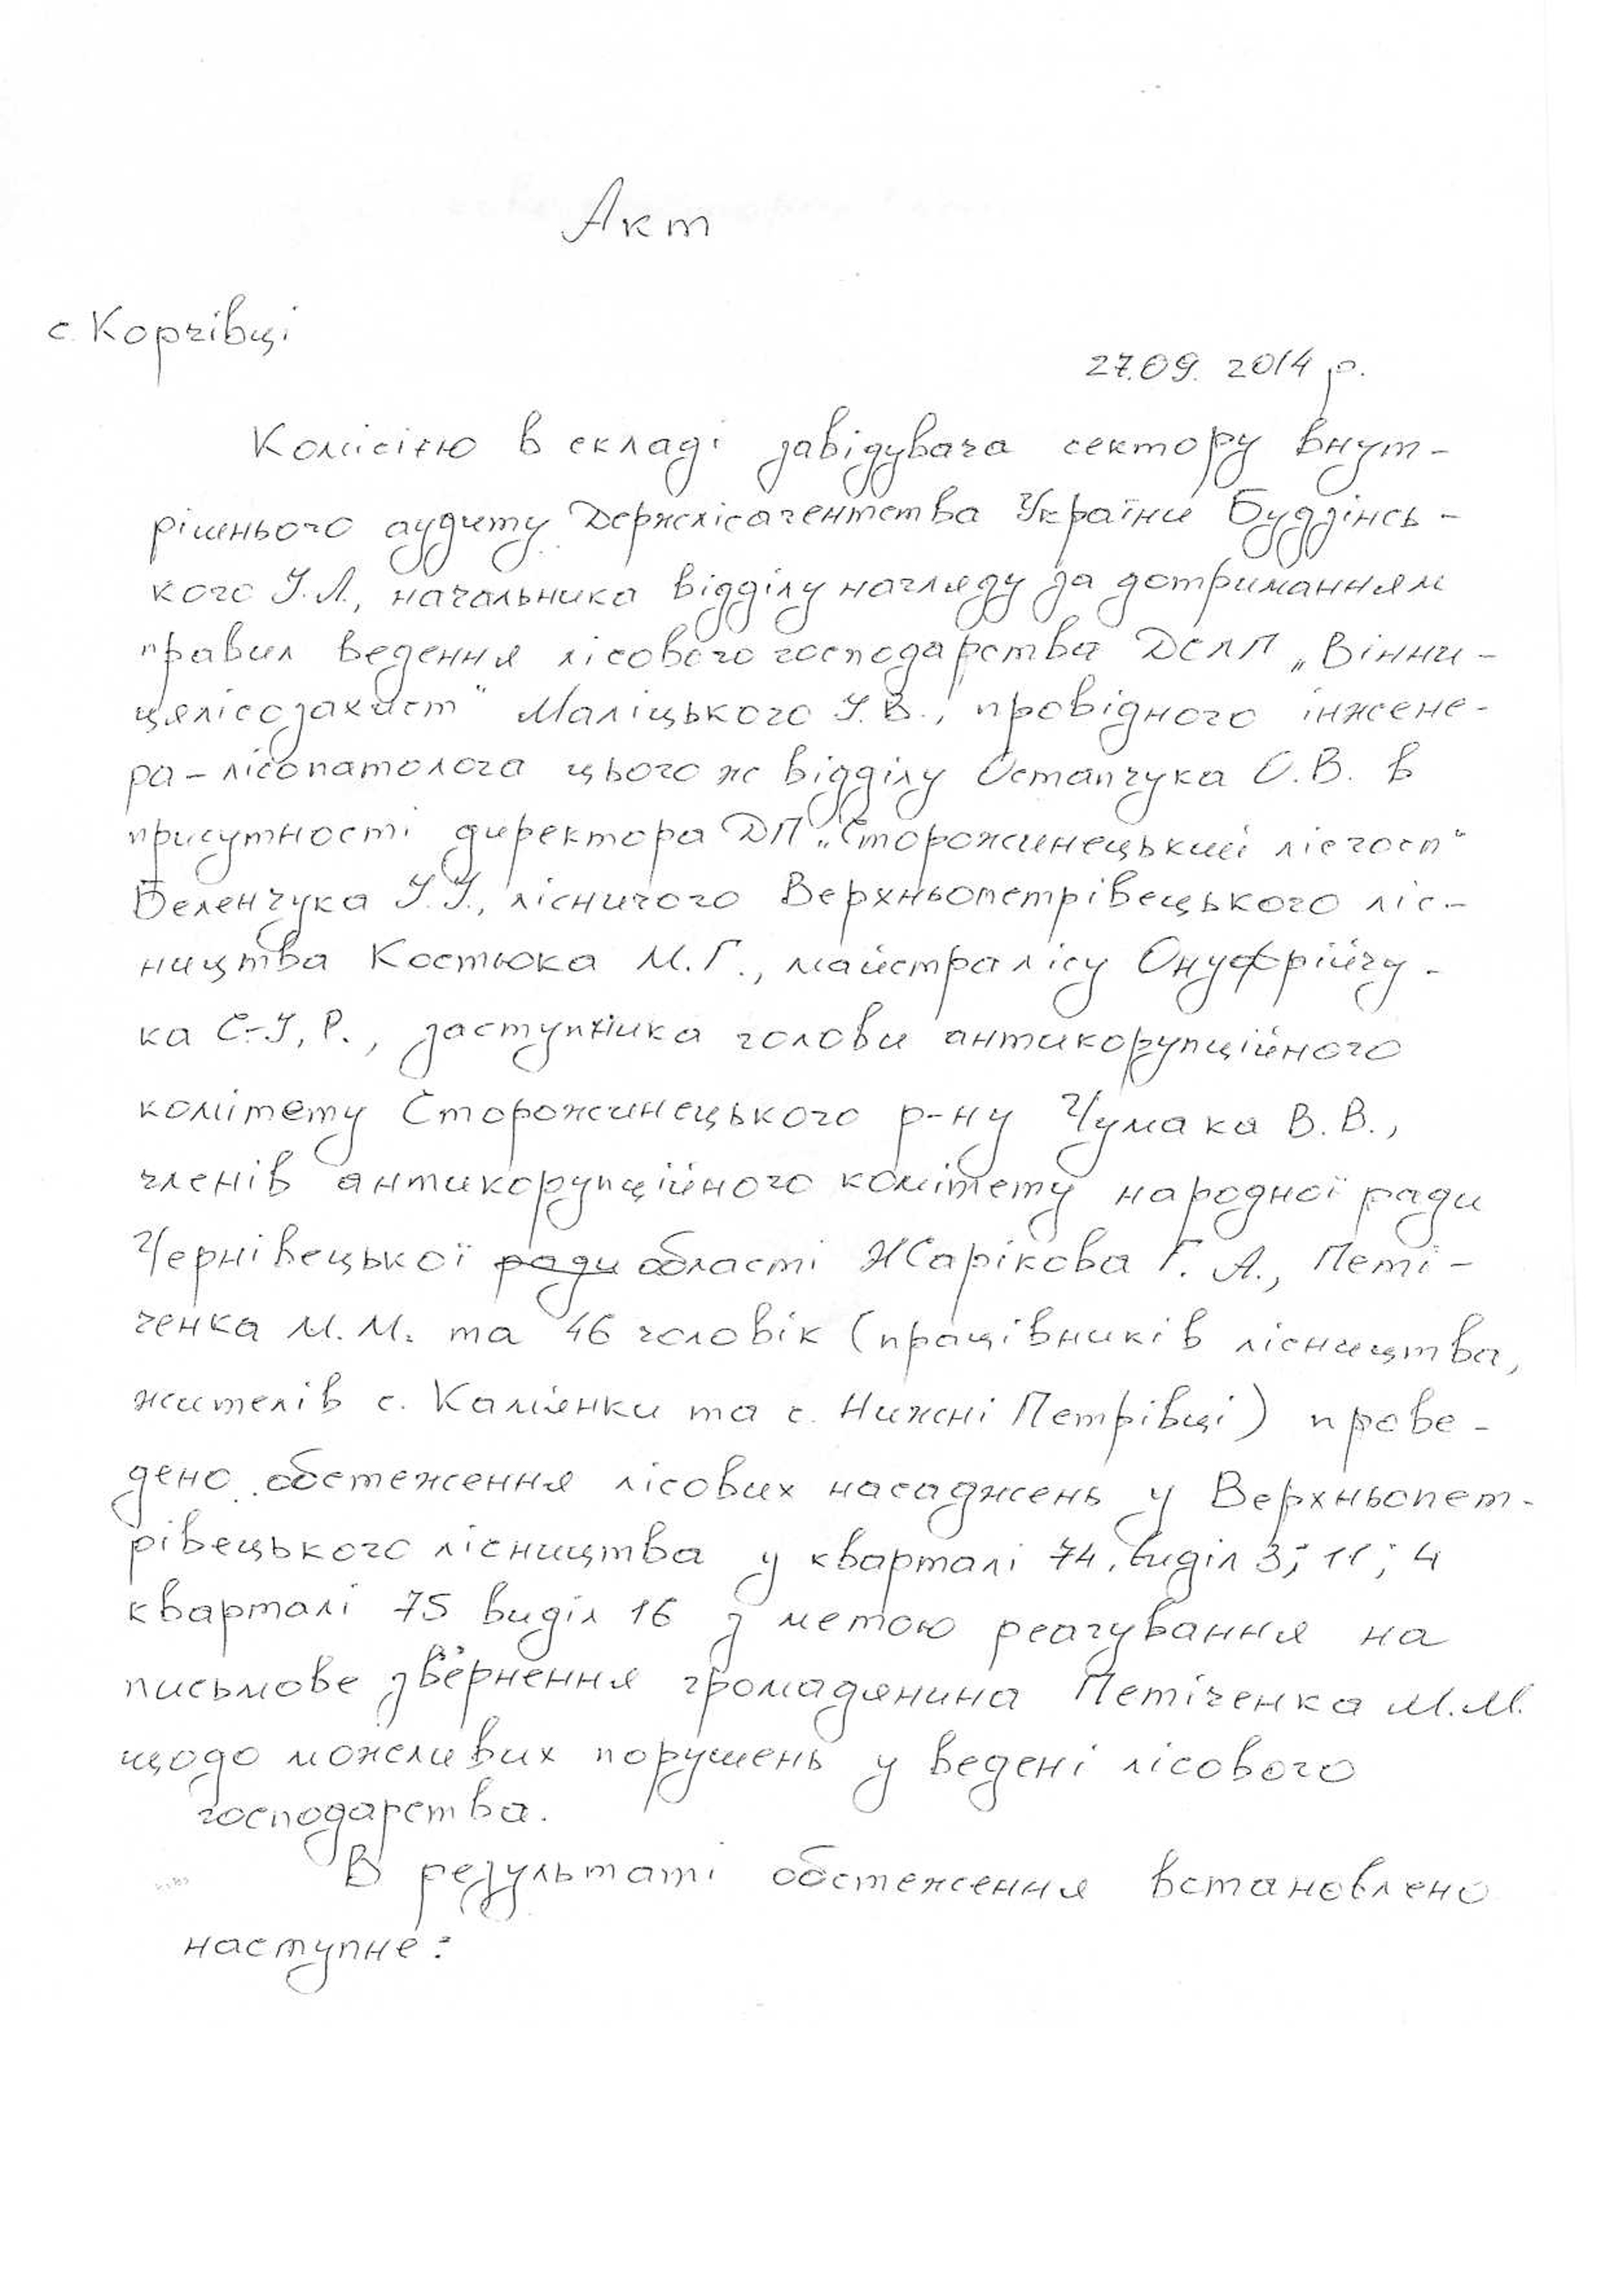 Акт
с. Корчівці
27.09.2014 р.
Комісією в складі завідувача сектору внут-
рішнього аудиту Держлісагентства України Буддінсь-
кого І.Л., начальника відділу нагляду за дотриманням
правил ведення лісового господарства ДСЛП „Вінни-
цялісозахист" Маліцького І.В., провідного інжене-
ра-лісопатолога цього ж відділу Остапчука О.В. в
присутності директора ДП „Сторожинецький лісгосп"
Беленчука І.І., лісничого Верхньопетрівецького ліс-
ництва Костюка М.Г., майстра лісу Онуфрійчу-
ка С.-І.Р., заступника голови антикорупційного
комітету Сторожинецького р-ну Чумака В.В.,
членів антикорупційного комітету народної ради
Чернівецької ради області Жарікова Г. А., Петі-
ченка М.М. та 46 чоловік (працівників лісництва,
жителів с. Кам'янки та с. Нижні Петрівці) прове-
дено обстеження лісових насаджень у Верхньопет-
рівецького лісництва у кварталі 74, виділ 3; 11; 4
кварталі 75 виділ 16 з метою реагування на
письмове звернення громадянина Петіченка М.М.
щодо можливих порушень у ведені лісового
господарства.
В результаті обстеження встановлено
наступне: